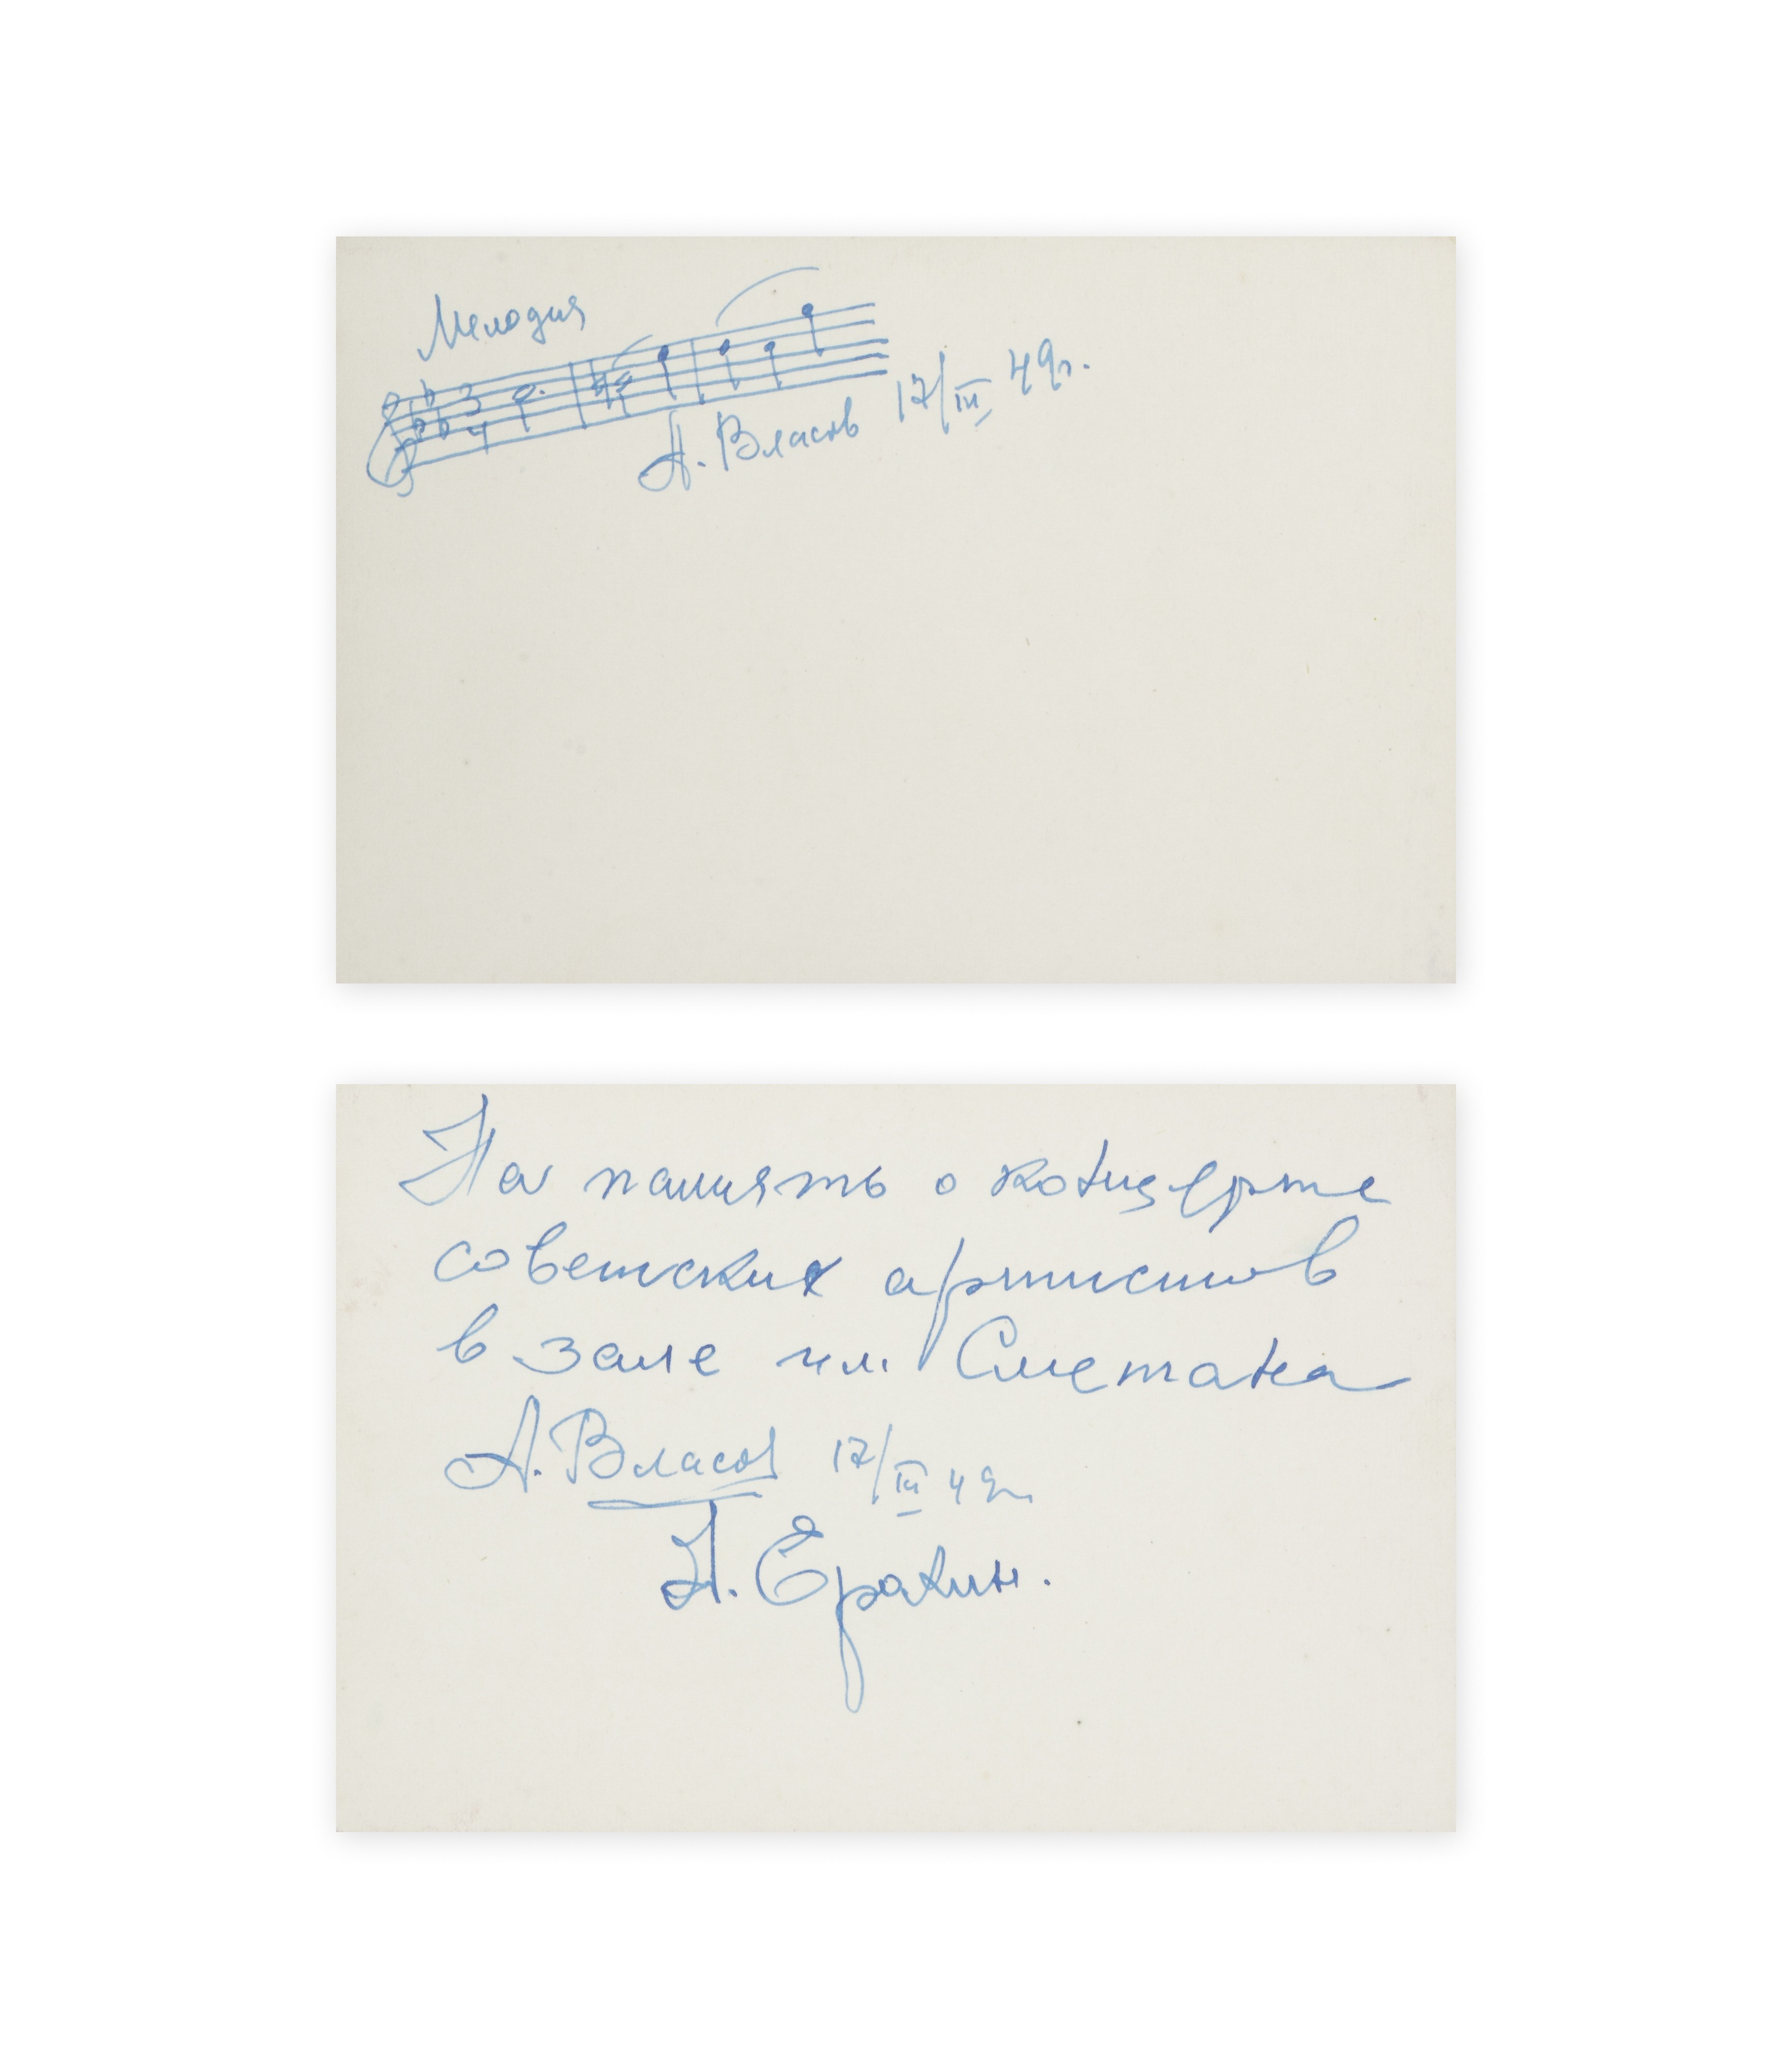 Мелодия
3
4
А. Власов 17/III 49г.
На память о концерте
советских артистов
в зале им. Сметана
А. Власов 17/III 49г.